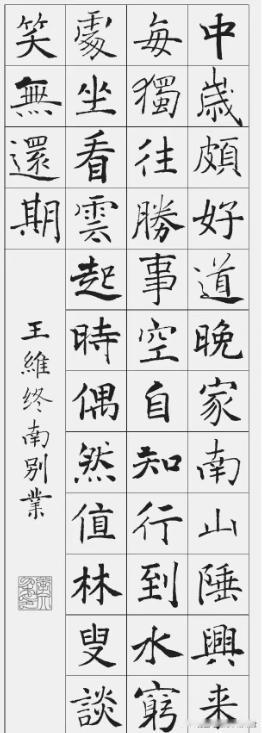 中歲頗好道晚家南山陲興来
每獨往勝事空自知行到水窮
處坐看雲起時偶然值林叟談
笑無還期
王維终南别業